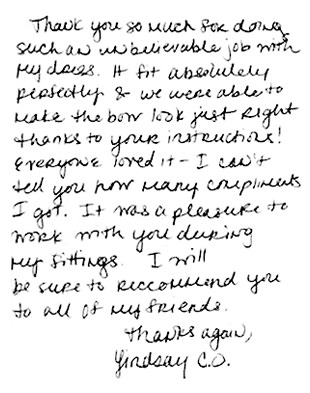 Thank you so much for doing
such an unbelievable job with
my dress. It fit absolutely
perfectly & we were able to
make the bow look just right
thanks to your instructions!
Everyone loved it - I can't
tell you how many compliments
I got. It was a pleasure to
work with you during
my fittings. I will
be sure to reccommend you
to all of my friends.
Thanks again,
Lindsay C.O.